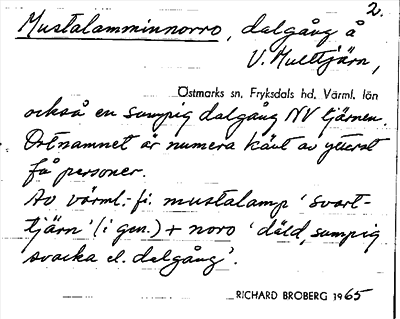 2.
Mustalamminnorro, dalgång å
V. Multtjärn,
Östmarks sn, Fryksdals hd, Värml. län
också en sumpig dalgång NV tjärnen.
Ortnamnet är numera känt av ytterst
få personer.
Av värml.-fi. mustalamp 'svart-
tjärn' (i gen.) + noro 'däld, sumpig
svacka el. dalgång'.
RICHARD BROBERG 1965